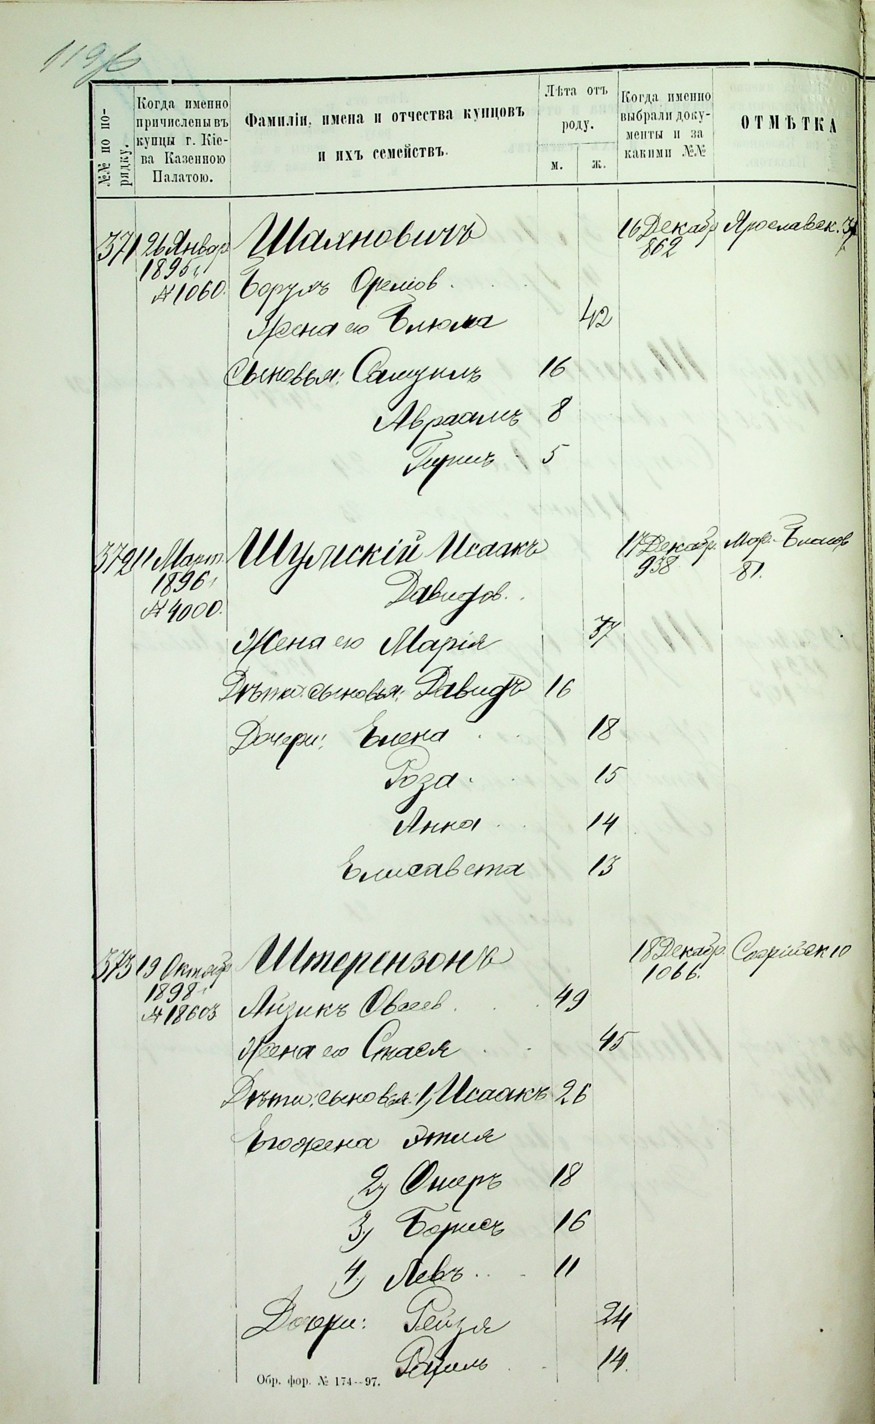 119
№№ по порядку.
Когда именно причислены въ купцы г. Кіева Казенною Палатою.
Фамиліи, имена и отчества купцовъ и ихъ семействъ.
Лѣта отъ роду.
м.
ж.
Когда именно выбрали документы и за какими №№
ОТМѢТКА
371 26 Январ Шахновичъ 16 Декабр Ярославск.
1895 862
№1060. Борухъ
Жена его Блюма 42
Сыновья: Самуилъ 16
Авраамъ 8
Гиршъ 5
372 11 Март Шумскій Исаакъ 17 Декабр.
1896 Давидов. 938 81.
№4000.
Жена его Марія 37
Дѣти: сыновья: Давидъ 16
Дочери: Елена 18
Роза 15
Анна 14
Елисавета 13
373 19 Октябр Штерензонъ 18 Декабр. Софійск 10
1898 1066.
№18603 Айзикъ Овсеев 49
Жена его Стася 45
Дѣти: сыновья: 1, Исаакъ 26
Его жена
2, Ошеръ 18
3, Борисъ 16
4, Левъ 11
Дочери: Рейзя 24
Рахиль 14.
Обр. фор. № 174—97.